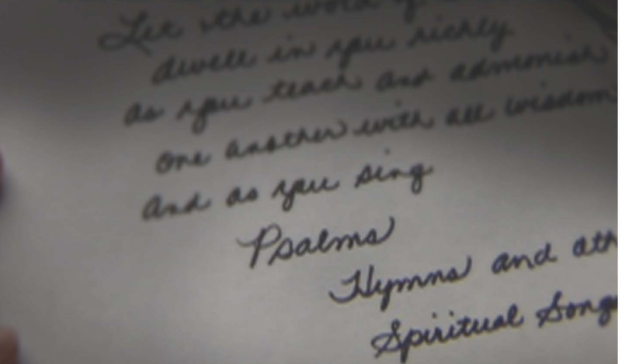 Let the word of
dwell in you richly
as you teach and admonish
one another with all wisdom
and as you sing
Psalms
Hymns and oth
Spiritual Song